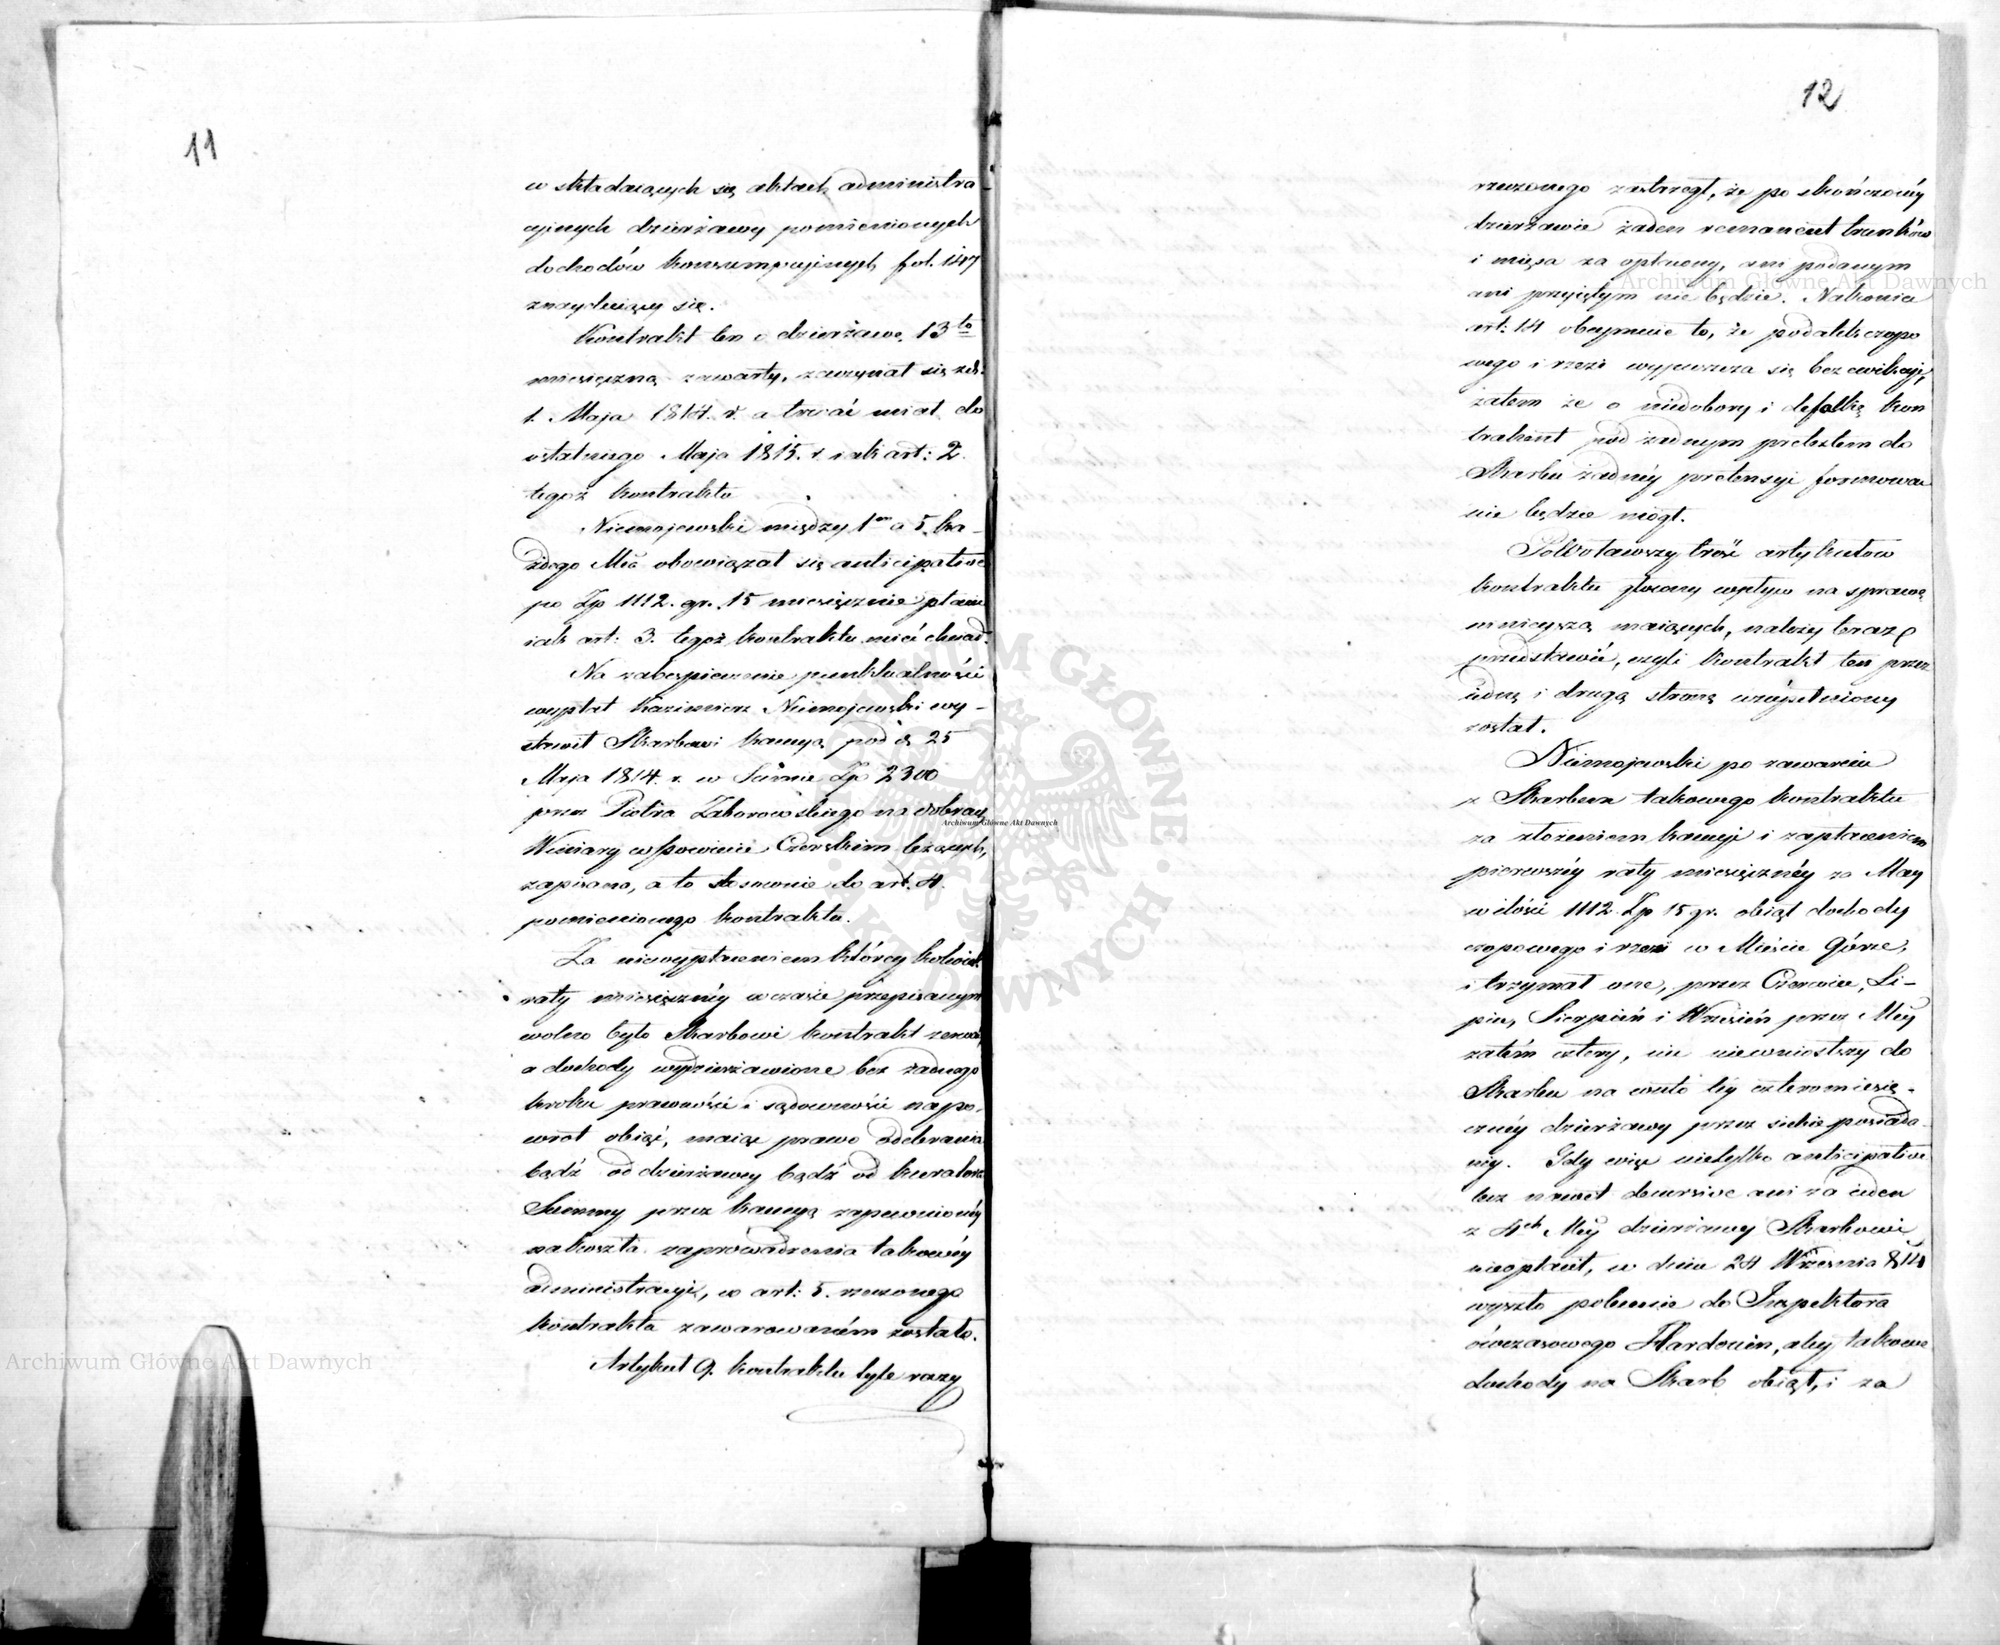 11
w składaiących się aktach administra
cyinych dzierżawy pomienionych
dochodów konsumpcyinych fol. 147
znayduiący się.
Kontrakt ten o dzierżawę 13to
miesięczną zawarty, zaczynał się z dn.
1. Maja 1814. r. a trwać miał do
ostatniego Maja 1815. r. iak art: 2.
tegoż kontraktu
Niemojewski między 1m a 5. ka-
żdego Mca obowiązał się anticipative
po Zp 1112. gr. 15 miesięcznie płacić
iak art: 3. tegoż kontraktu mieć chciał.
Na zabezpieczenie punktualności
wypłat Kazimierz Niemojewski wy-
stawił Skarbowi kaucyą pod d. 25
Maja 1814. r. w Summie Zp 2300
przez Piotra Zaborowskiego na dobrach
Winiary w Powiecie Czerskim leżących,
zapisaną, a to stosownie do art. 4.
pomienionego kontraktu.
Za niewypłaceniem którey kolwiek
raty miesięczney w czasie przepisanym
wolno było Skarbowi kontrakt zerwać,
a dochody wydzierżawione bez żadnego
kroku prawności i sądowności napo-
wrót obiąć, maiąc prawo odebrania
bądź od dzierżawcy bądź od kuratora
Summy przez kaucyą zapewnioney
nakoszta zaprowadzenia takowéy
administracyi, w art: 5. rzeczonego
kontraktu zawarowaném zostało.
Artykuł 9. kontraktu tyle razy
12
rzeczonego zastrzegł, że po skończonéy
dzierżawie żaden remanent trunków
i mięsa za opłacony, ani podanym
ani przyiętym nie będzie. Nakoniec
art: 14 obeymuie to, że podatek czopo
wego i rzezi wypuszcza się bez ewikcyi,
zatem że o niedobory i defalkę kon
trahent pod żadnym pretextem do
Skarbu żadnéy pretensyi formować
nie będzie mógł.
treść artykułów
kontraktu główny wpływ na sprawę
ninieyszą maiących, należy teraz
przedstawić, czyli kontrakt ten przez
iedną i drugą stronę uzupełniony
został.
Niemojewski po zawarciu
z Skarbem takowego kontraktu
za złożeniem kaucyi i zapłaceniem
pierwszéy raty miesięcznéy za May
w ilości 1112 Zp 15 gr. obiął dochody
czopowego i rzezi w Mieście Górze,
i trzymał one, przez Czerwiec, Li-
piec, Sierpień i Wrzesień przez Mcy
zatém cztery, nic niewniosłszy do
Skarbu na conto téy czteromiesię-
cznéy dzierżawy przez siebie posiada-
néy. Gdy więc nietylko anticipative
lecz nawet decursive ani za ieden
z 4ch Mcy dzierżawy Skarbowi
nieopłacił, w dniu 24 Września 814
wyszło polecenie do Inspektora
ówczasowego Hardouin, aby takowe
dochody na Skarb obiął, i za
Archiwum Główne Akt Dawnych
Archiwum Główne Akt Dawnych
Archiwum Główne Akt Dawnych
ARCHIWUM GŁÓWNE AKT DAWNYCH